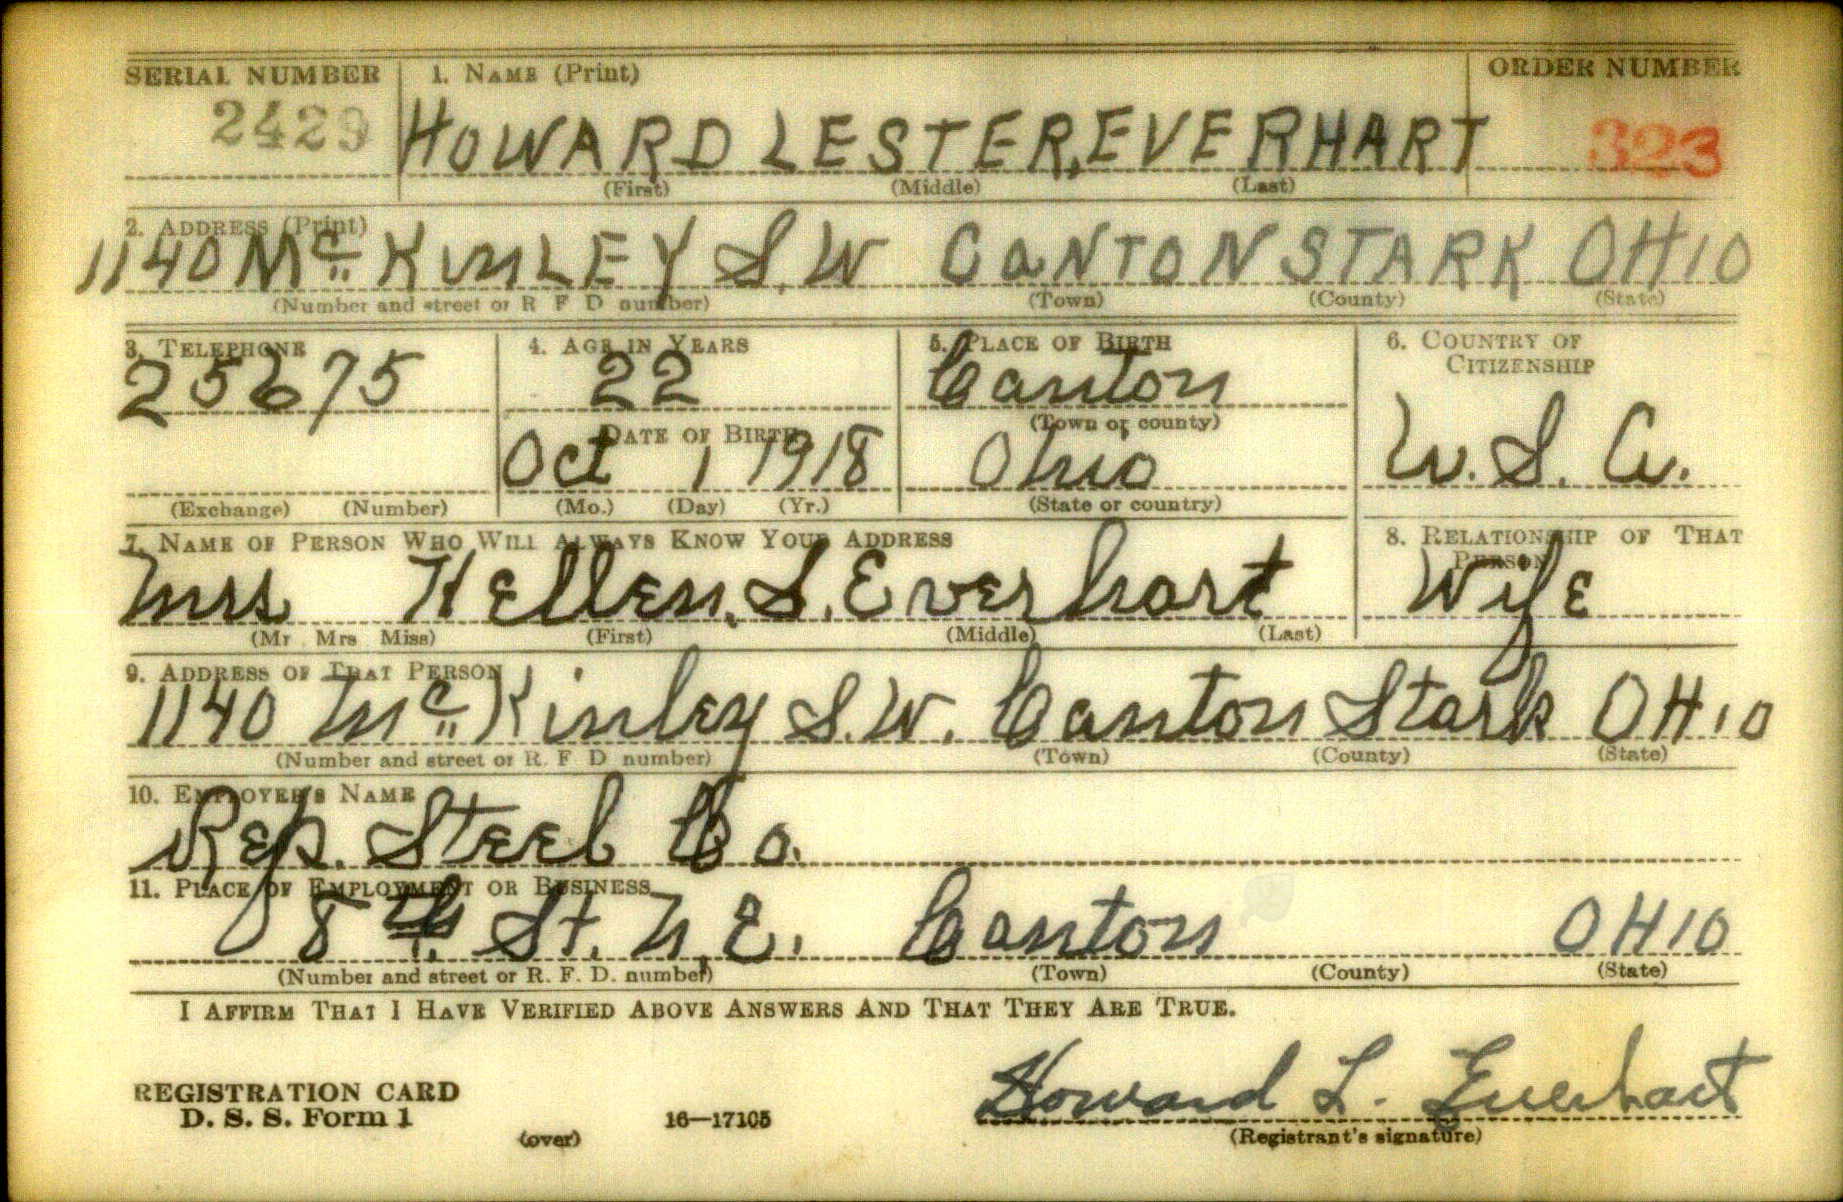 SERIAL NUMBER 1. NAME (Print) ORDER NUMBER
2429 HOWARD LESTER, EVERHART 323
(First) (Middle) (Last)
2. ADDRESS (Print)
1140 Mc KinLEY S.W CaNTON STARK OHIO
(Number and street or R F D number) (Town) (County) (State)
3. TELEPHONE 4. AGE IN YEARS 5. PLACE OF BIRTH 6. COUNTRY OF CITIZENSHIP
25675 22 Canton
DATE OF BIRTH (Town or county)
Oct 1 1918 Ohio U.S.A.
(Exchange) (Number) (Mo.) (Day) (Yr.) (State or country)
7. NAME OF PERSON WHO WILL ALWAYS KNOW YOUR ADDRESS 8. RELATIONSHIP OF THAT PERSON
Mrs Hellen. S. Everhart Wife
(Mr. Mrs. Miss) (First) (Middle) (Last)
9. ADDRESS OF THAT PERSON
1140 Mc Kinley S.W. Canton Stark OHio
(Number and street or R. F. D number) (Town) (County) (State)
10. EMPLOYER'S NAME
Rep. Steel Co.
11. PLACE OF EMPLOYMENT OR BUSINESS
8th St. N.E. Canton OHIO
(Number and street or R. F. D. number) (Town) (County) (State)
I AFFIRM THAT I HAVE VERIFIED ABOVE ANSWERS AND THAT THEY ARE TRUE.
Howard L. Everhart
REGISTRATION CARD
D. S. S. Form 1 16—17105
(over) (Registrant's signature)